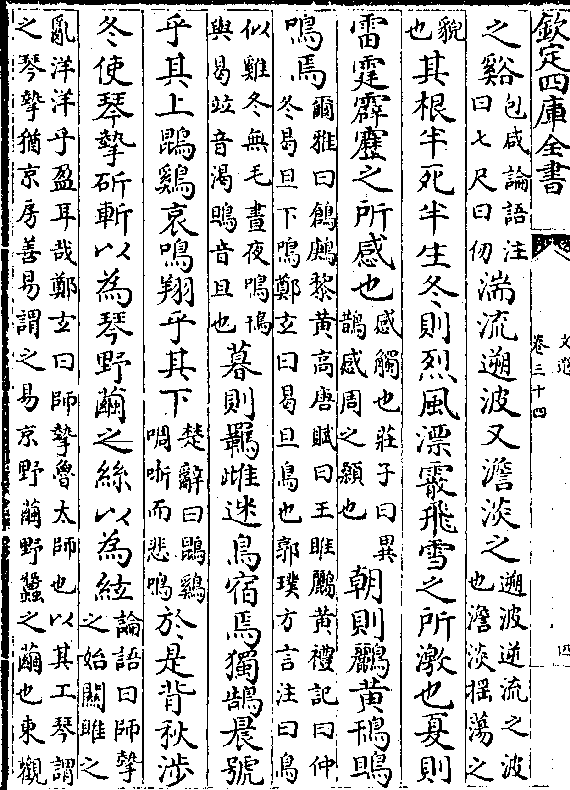 欽定四庫全書
文選
卷三十四
四
之谿包咸論語注曰七尺曰仞湍流遡波又澹淡之遡波逆流之波也澹淡揺蕩之
貌也其根半死半生冬則烈風漂霰飛雪之所激也夏則
雷霆霹靂之所感也感觸也莊子曰異鵲感周之顙也朝則鸝黄鳱鴠
鳴焉爾雅曰鶬鶊黎黄高唐賦曰王雎鸝黄禮記曰仲冬曷旦下鳴鄭玄曰曷旦鳥也郭璞方言注曰鳥
似雞冬無毛晝夜鳴鳱與曷竝音渇鴠音旦也暮則羈雌迷鳥宿焉獨鵠晨號
乎其上鵾鷄哀鳴翔乎其下楚辭曰鵾鷄啁哳而悲鳴於是背秋渉
冬使琴摯斫斬以為琴野繭之絲以為絃論語曰師摯之始關雎之
亂洋洋乎盈耳哉鄭玄曰師摯魯太師也以其工琴謂之琴摯猶京房善易謂之易京野繭野蠶之繭也東觀